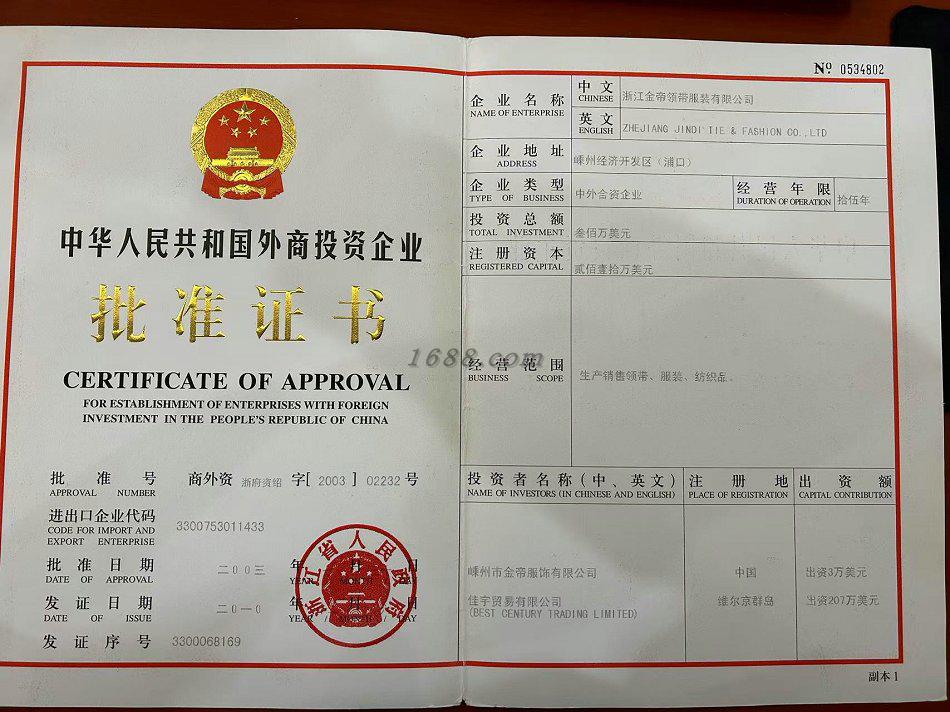 中华人民共和国外商投资企业
批准证书
CERTIFICATE OF APPROVAL
FOR ESTABLISHMENT OF ENTERPRISES WITH FOREIGN
INVESTMENT IN THE PEOPLE'S REPUBLIC OF CHINA
批准号 商外资 浙府资绍 字[ 2003 ] 02232 号
APPROVAL NUMBER
进出口企业代码 3300753011433
CODE FOR IMPORT AND
EXPORT ENTERPRISE
批准日期 二00三 年 月 日
DATE OF APPROVAL YEAR / MONTH / DAY
发证日期 二0一0 年 月 日
DATE OF ISSUE YEAR / MONTH / DAY
发证序号 3300068169
浙江省人民政府
1688.com
№ 0534802
企业名称 中文 浙江金帝领带服装有限公司
NAME OF ENTERPRISE CHINESE
英文 ZHEJIANG JINDI TIE & FASHION CO.,LTD
ENGLISH
企业地址 嵊州经济开发区（浦口）
ADDRESS
企业类型 中外合资企业 经营年限 拾伍年
TYPE OF BUSINESS DURATION OF OPERATION
投资总额 叁佰万美元
TOTAL INVESTMENT
注册资本 贰佰壹拾万美元
REGISTERED CAPITAL
经营范围 生产销售领带、服装、纺织品。
BUSINESS SCOPE
投资者名称（中、英文） 注册地 出资额
NAME OF INVESTORS (IN CHINESE AND ENGLISH) PLACE OF REGISTRATION CAPITAL CONTRIBUTION
嵊州市金帝服饰有限公司 中国 出资3万美元
佳宇贸易有限公司 维尔京群岛 出资207万美元
(BEST CENTURY TRADING LIMITED)
副本1